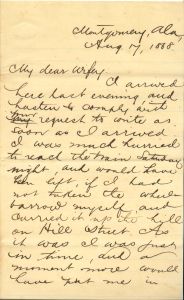 Montgomery, Ala
Aug 17, 1888
My dear Wifey:
I arrived
here last evening and
hasten to comply with
your request to write as
soon as I arrived
I was much hurried
to reach the train
night, and would have
left, if I had
not taken the wheel
barrow myself and
carried it up the hill
on Hill Street As
it was I was just
in time, and a
moment more would
have put me in